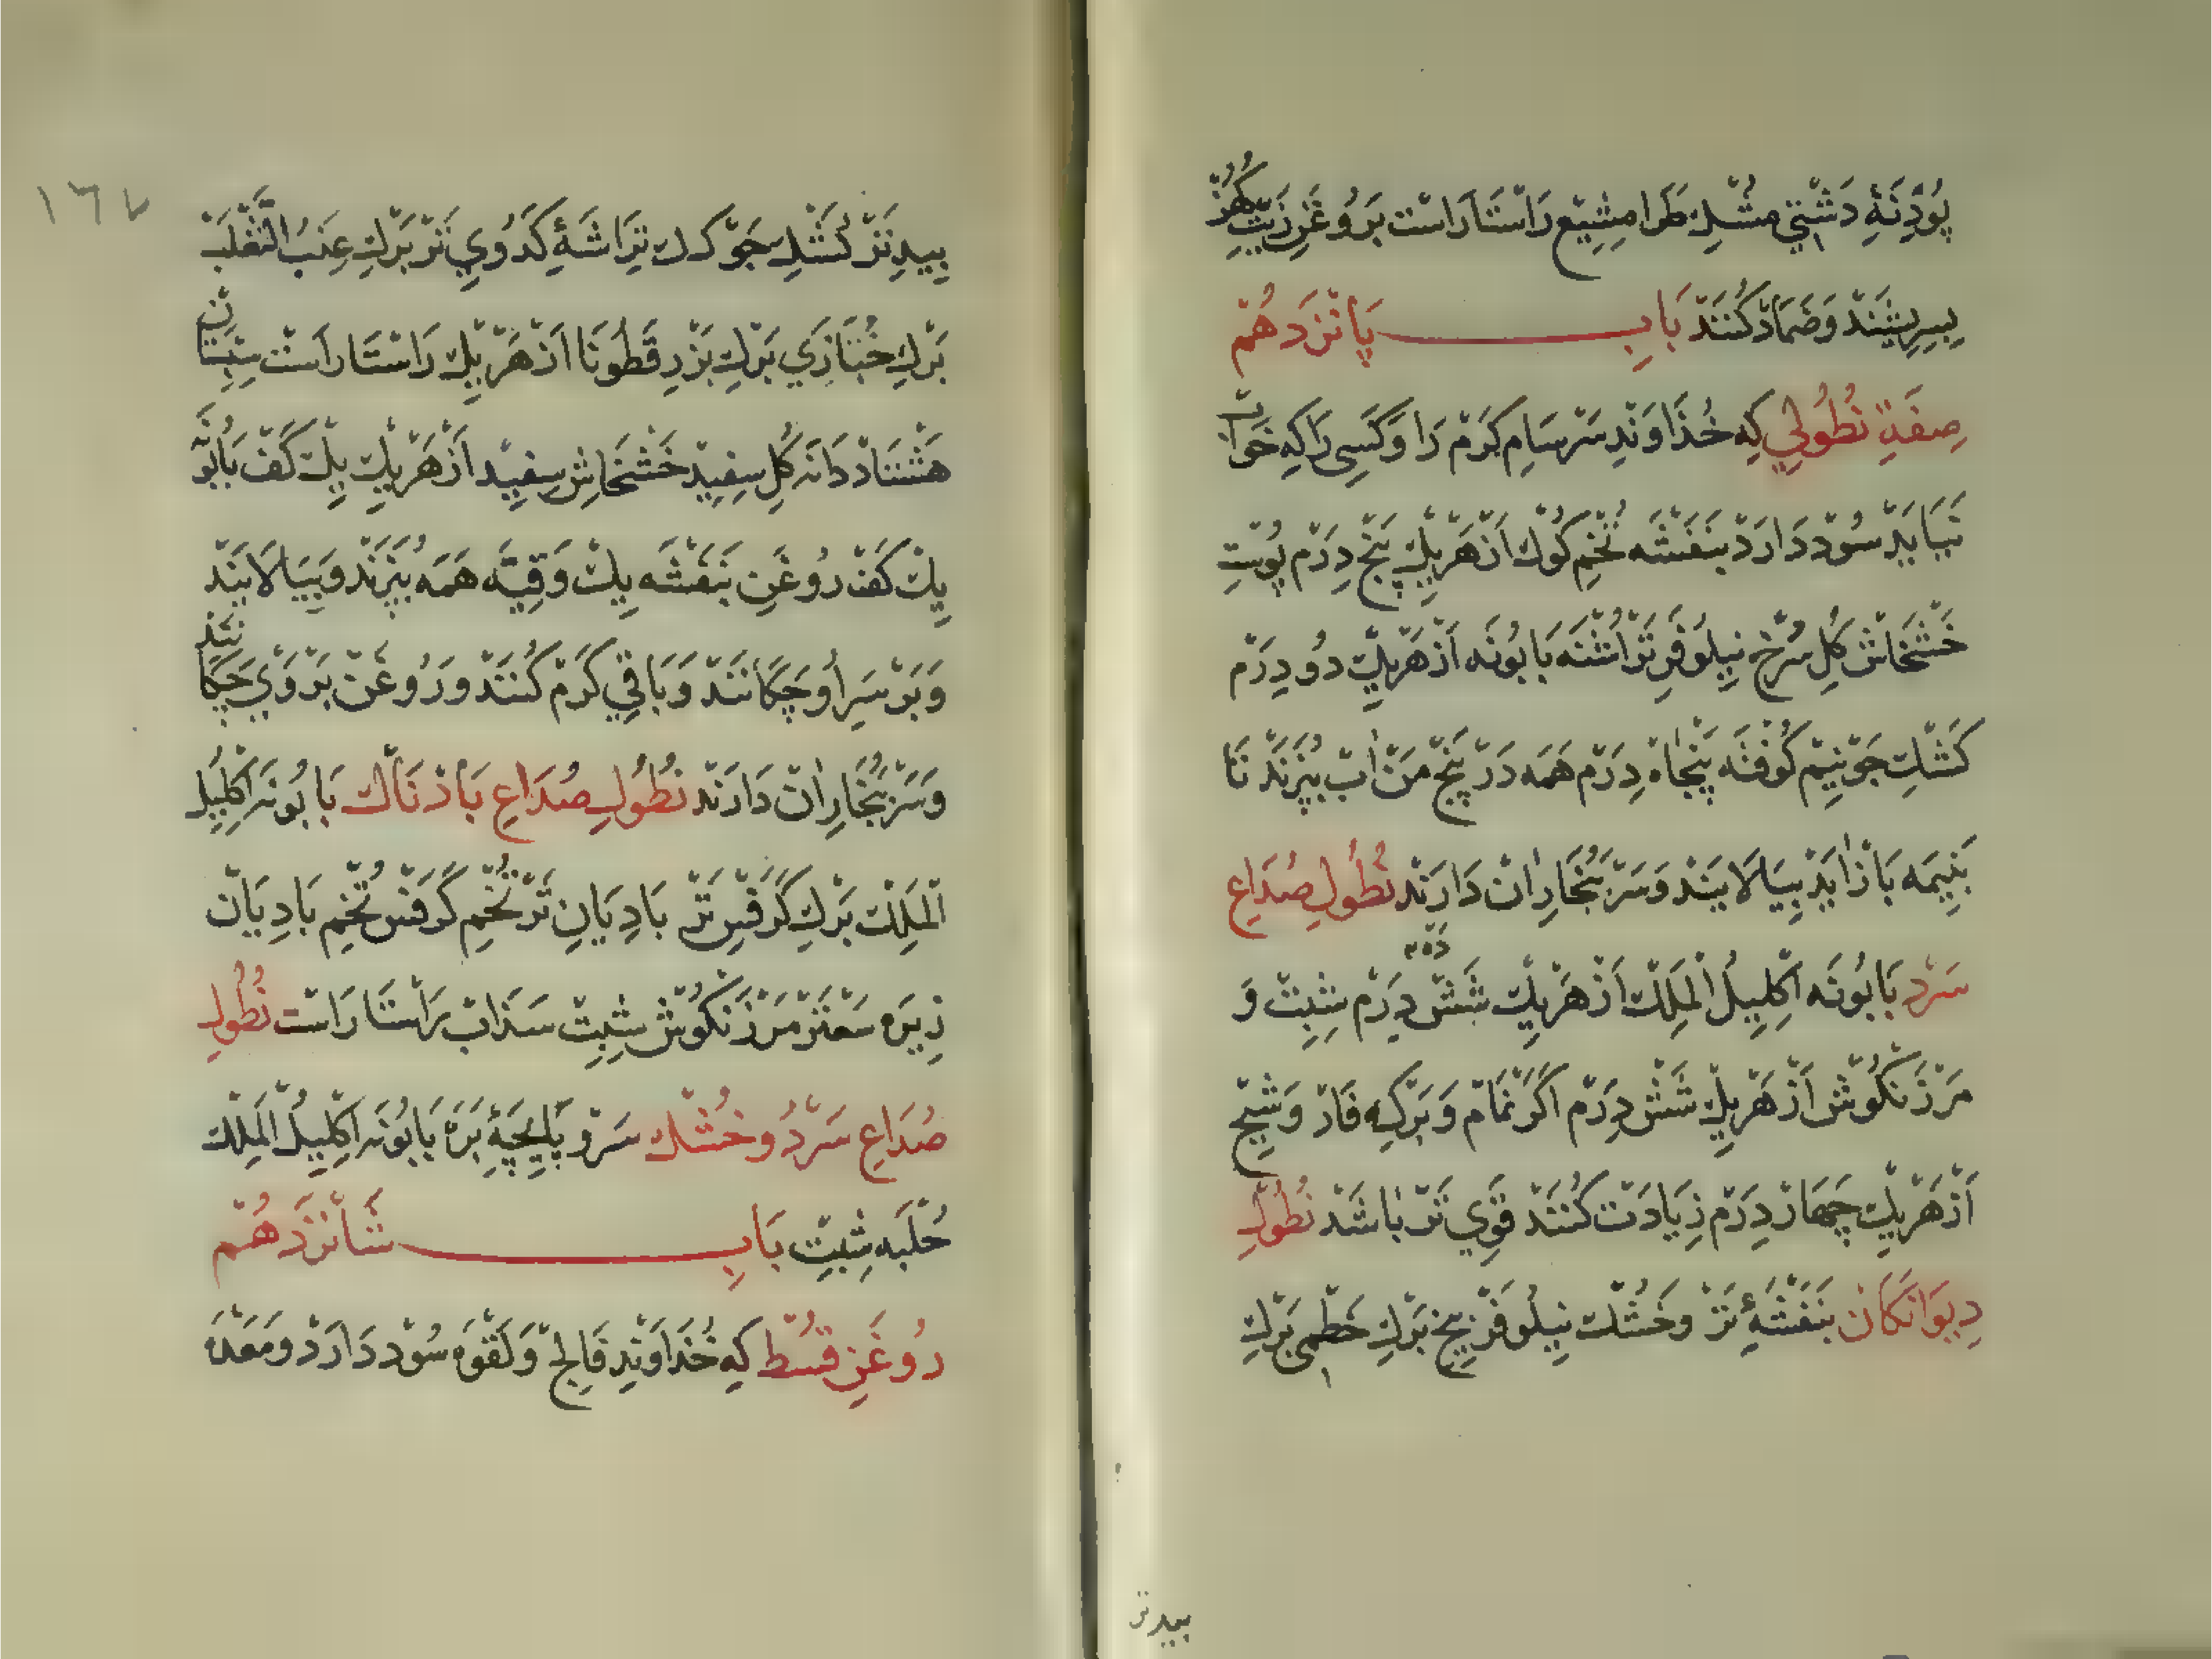 پُوذنَهِ دَشتِي مُشكِ طَرامشِيع رَاستَاراست بَروُغَنِ زَيت كُهُن
بِسِرِيشَند وَضِمَاد كُنَند بَابِ پَانزدَهُم
صِفَةِ نُطُولِي كِه خُذَاوَندِ سَرسَامِ كَرم رَا وَكَسِى رَا كِه خَوَاب
نَيَايَد سُود دَارَد بَنَفشَه تُخمِ كُوك اَز هَر يِك پَنج دِرَم پُوستِ
خَشخَاش كُلِ سُرخ نِيلُوفَرِ تَر اُشنَه بَابُونَه اَز هَر يِك دُو دِرَم
كَشكِ جَو نِيم كُوفتَه پَنجَاه دِرَم هَمَه دَر پَنج مَن اٰب بِپَزَند تَا
بَنِيمَه بَاز اٰيَد بِپَالَايَند وَسَر بَبُخَارِ اٰن دَارَند نُطُولِ صُدَاعِ
سَرد بَابُونَه اِكلِيلُ المَلِك اَز هَر يِك شَش دِرَم شِبِت وَ
مَرزَنكُوش اَز هَر يِك شَش دِرَم اَكَر نَمَام وَبَركِ غَار وَشِيح
اَز هَر يِك چَهَار دِرَم زِيَادَت كُنَند قَوِي تَر بَاشَد نُطُولِ
دِيوَانَكَان بَنَفشَهٔ تَر وَخُشك نِيلُوفَر بِيخ بَركِ خَطمِى بَركِ
بيد تر
١٦٧
بِيدِ تَر كَشكِ جَو كدك تِرَاشَهٔ كَدُوي تَر بَركِ عِنَبُ الثَّعلَب
بَركِ خُبَّازِي بَركِ بَزرِ قَطُونَا اَز هَر يِك رَاستَارَاست سِپِستَان
هَشتَاد دَانَه كُلِ سِفِيد خَشخَاشِ سِفِيد اَز هَر يِك يِك كَف بَابُونَه
يِك كَف رُوغَنِ بَنَفشَه يِك وَقِيَّه هَمَه بِپَزَند وَبِپَالَايَند
وَبَر سَرِ اُو چَكَانَند وَبَاقِي كَرم كُنَند وَرُوغَن بَر وَي چَكَانَند
وَسَر بَبُخَارِ اٰن دَارَند نُطُولِ صُدَاعِ بَادنَاك بَابُونَه اِكلِيلُ
المَلِك بَركِ كَرَفسِ تَر بَادِيَانِ تَر تُخمِ كَرَفس تُخمِ بَادِيَان
زِيرَه سَعتَر مَرزَنكُوش شِبِت سَذَاب رَاستَارَاست نُطُولِ
صُدَاعِ سَرد وخُشك سَر و پَايچَهٔ بَرَه بَابُونَه اِكلِيلُ المَلِك
حُلبَه شِبِت بَابِ شَانزدَهُم
رُوغَنِ قُسط كِه خُذَاوَندِ فَالِج وَلَقوَه سُود دَارَد وَمَعدَه